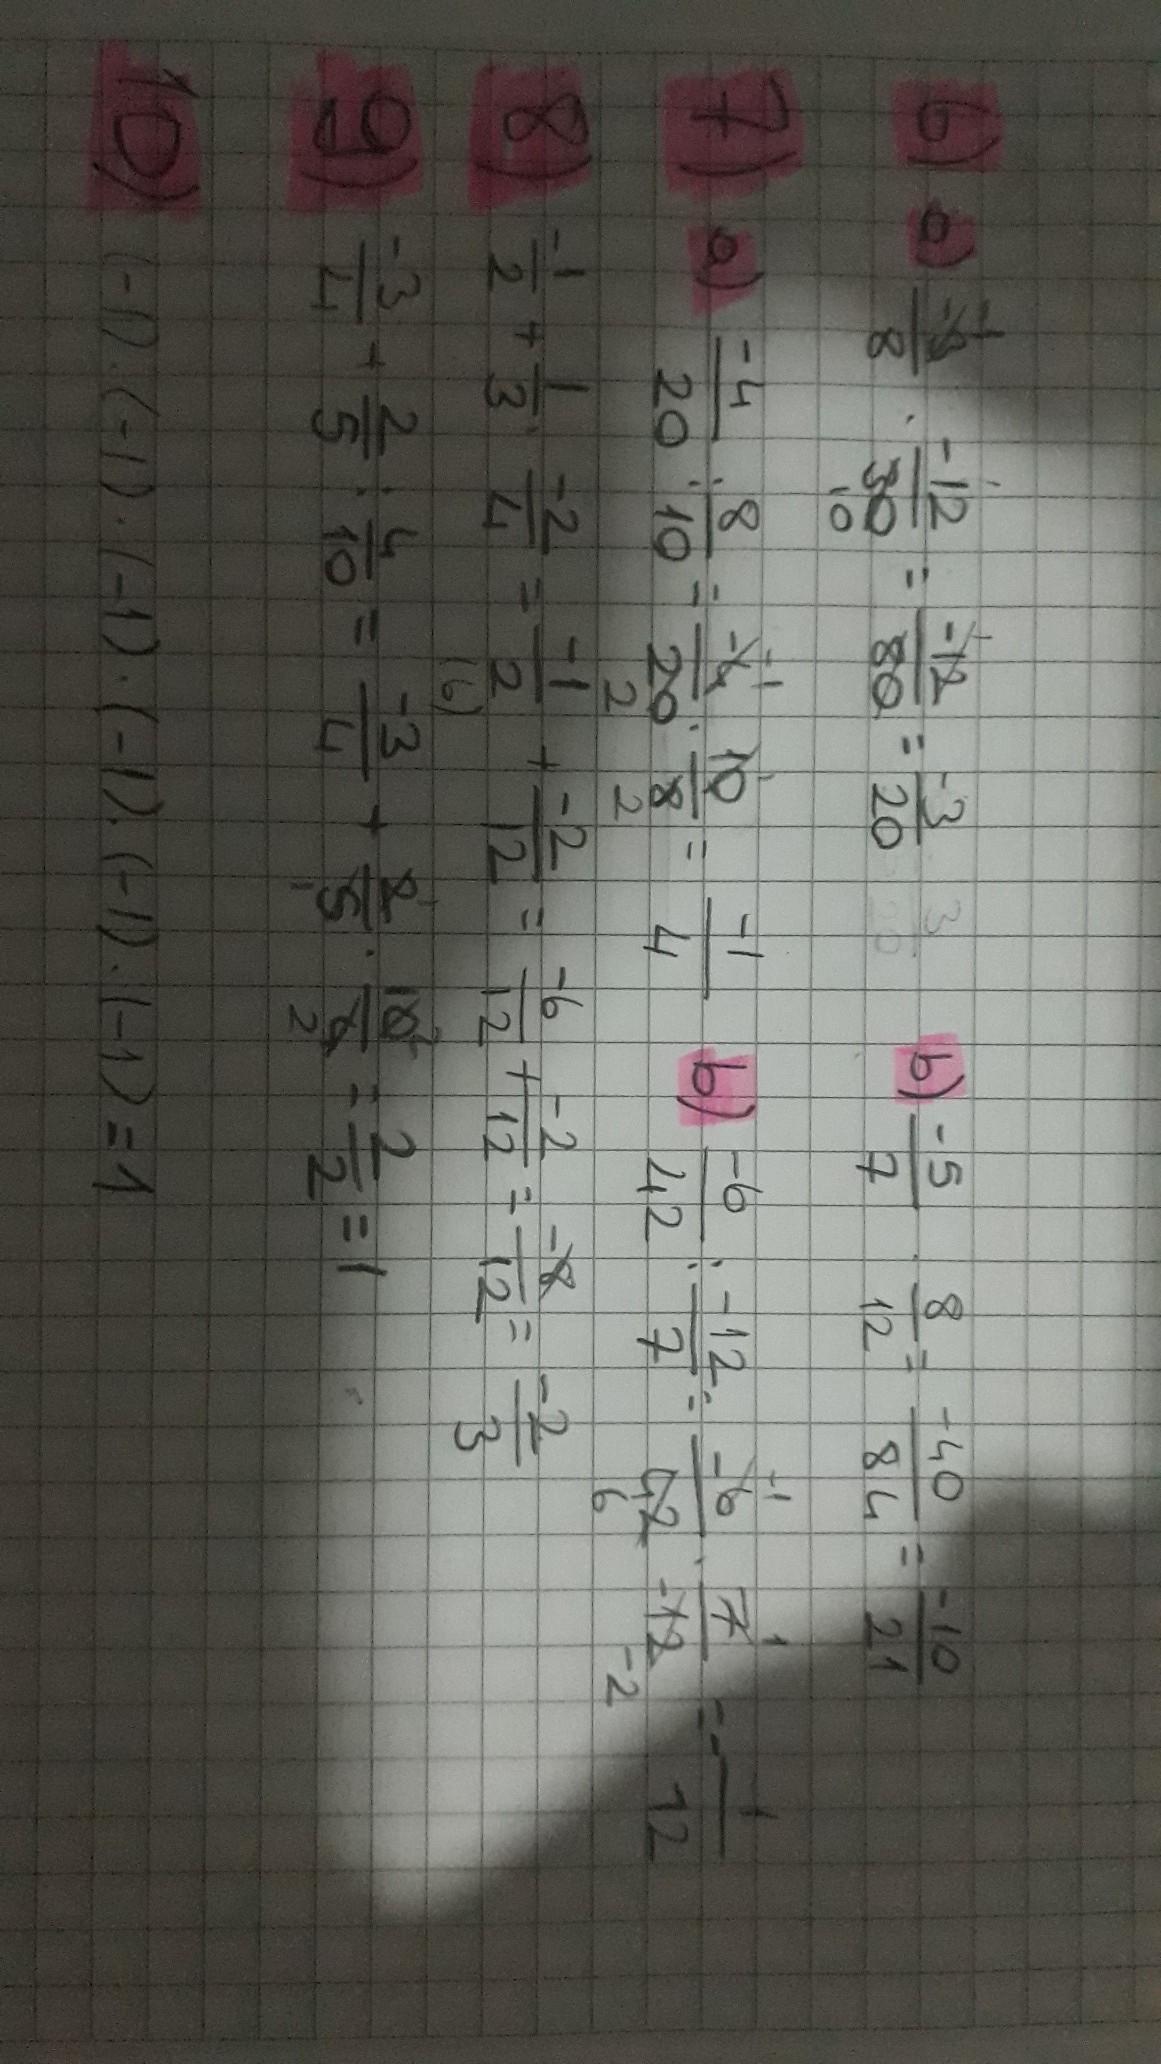 6) a) -3/8 · -12/30 10 = -12/80 = -3/20 b) -5/7 · 8/12 = -40/84 = -10/21
7) a) -4/20 : 8/10 = -4/20 · 10/8 = -1/4 b) -6/42 : -12/7 = -6/42 · 7/-12 = - 1/12
8) -1/2 + 1/3 · -2/4 = -1/2 + -2/12 = -6/12 + -2/12 = -8/12 = -2/3
(6)
9) -3/4 + 2/5 : 4/10 = -3/4 + 2/5 · 10/4 = 2/2 = 1
10) (-1) · (-1) · (-1) · (-1) · (-1) · (-1) = 1